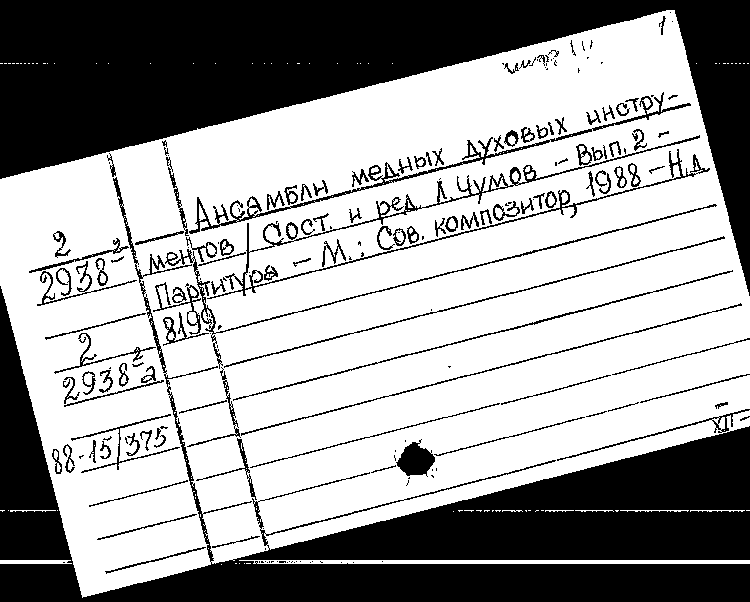 1
Ансамбли медных духовых инстру-
ментов / Сост. и ред. Л. Чумов – Вып. 2 –
Партитура – М.: Сов. композитор, 1988 – Н.д
8199.
2
2938-2
2
2938 2а
88-15/375
XII –